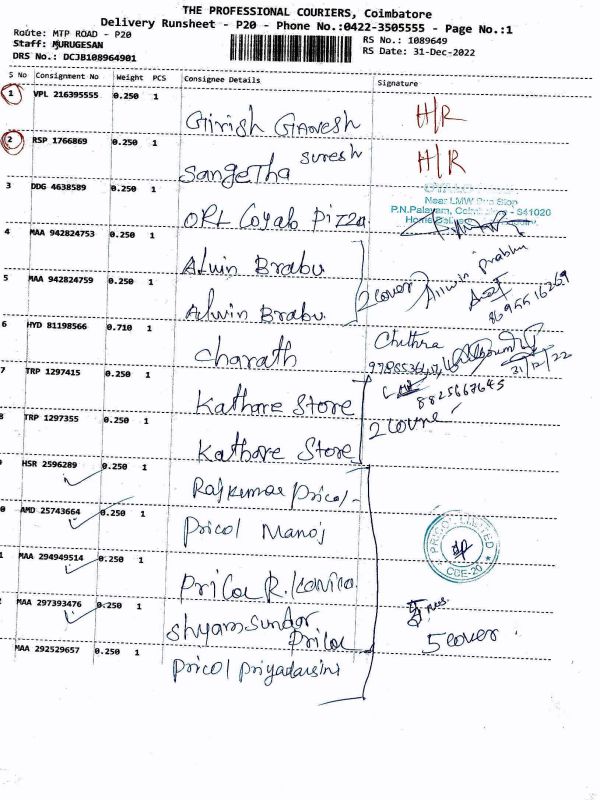 THE PROFESSIONAL COURIERS, Coimbatore
Delivery Runsheet - P20 - Phone No.:0422-3505555 - Page No.:1
Route: MTP ROAD - P20
RS No.: 1089649
Staff: MURUGESAN
RS Date: 31-Dec-2022
DRS No.: DCJB108964901
S No Consignment No Weight PCS Consignee Details Signature
1 VPL 216395555 0.250 1 Girish Ganesh H/R
2 RSP 1766869 0.250 1 Sangetha Suresh H/R
3 DDG 4638589 0.250 1 ORL Coyab Pizza
Near LMW Bus Stop
P.N.Palayam, - 641020
4 MAA 942824753 0.250 1 Alwin Brabu
2 cover Allwin prabhu
5 MAA 942824759 0.250 1 Alwin Brabu
8695516269
6 HYD 81198566 0.710 1 Charath Chithra
31/12/22
7 TRP 1297415 0.250 1 Kathore Store
8825667645
TRP 1297355 0.250 1 Kathore Store
2 covre
HSR 2596289 0.250 1 Rajkumar Pricol
0 AMD 25743664 0.250 1 Pricol Manoj
PRICOL LIMITED
CCE-20
1 MAA 294949514 0.250 1 Pricol R.
MAA 297393476 0.250 1 Shyam Sundar Pricol
5 cover
MAA 292529657 0.250 1 Pricol Priyadarsini